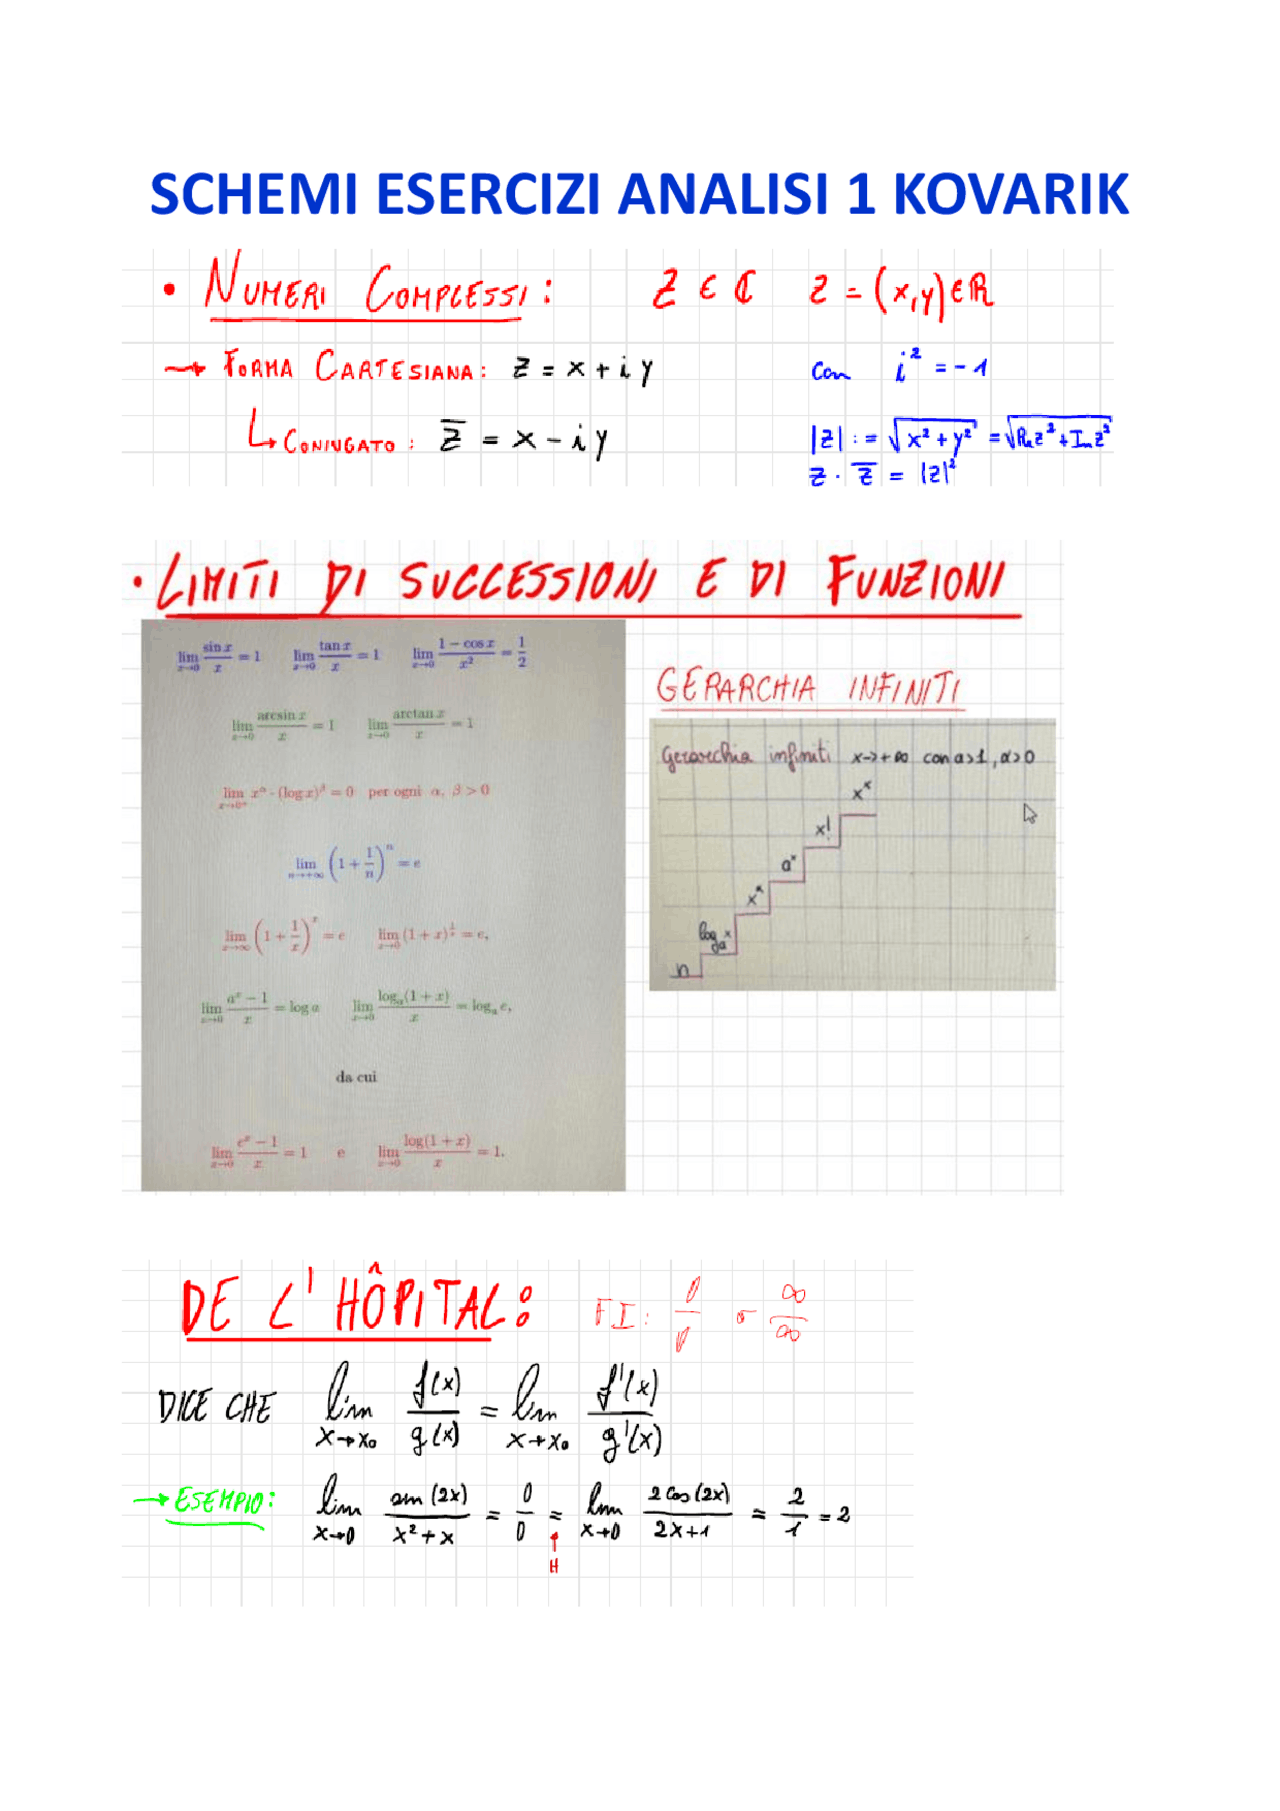 SCHEMI ESERCIZI ANALISI 1 KOVARIK
• NUMERI COMPLESSI: Z ∈ ℂ Z = (x,y) ∈ ℝ
→ FORMA CARTESIANA: Z = x + i y con i² = -1
↳ CONIUGATO: Z̅ = x - i y |Z| := √(x² + y²) = √(Re z² + Im z²)
Z · Z̅ = |Z|²
• LIMITI DI SUCCESSIONI E DI FUNZIONI
lim x→0 sin x / x = 1 lim x→0 tan x / x = 1 lim x→0 (1 − cos x) / x² = 1/2
lim x→0 arcsin x / x = 1 lim x→0 arctan x / x = 1
lim x→0⁺ x^α · (log x)^β = 0 per ogni α, β > 0
lim n→+∞ (1 + 1/n)^n = e
lim x→∞ (1 + 1/x)^x = e lim x→0 (1 + x)^(1/x) = e,
lim x→0 (a^x − 1) / x = log a lim x→0 log_a(1 + x) / x = log_a e,
da cui
lim x→0 (e^x − 1) / x = 1 e lim x→0 log(1 + x) / x = 1.
GERARCHIA INFINITI
Gerarchia infiniti x→+∞ con a>1, α>0
x^x
x!
a^x
x^α
log_a x
n
DE L'HÔPITAL: F.I: 0/0 o ∞/∞
DICE CHE lim x→x₀ f(x)/g(x) = lim x→x₀ f'(x)/g'(x)
→ ESEMPIO: lim x→0 sin(2x) / (x² + x) = 0/0 = lim x→0 2cos(2x) / (2x+1) = 2/1 = 2
↑
H